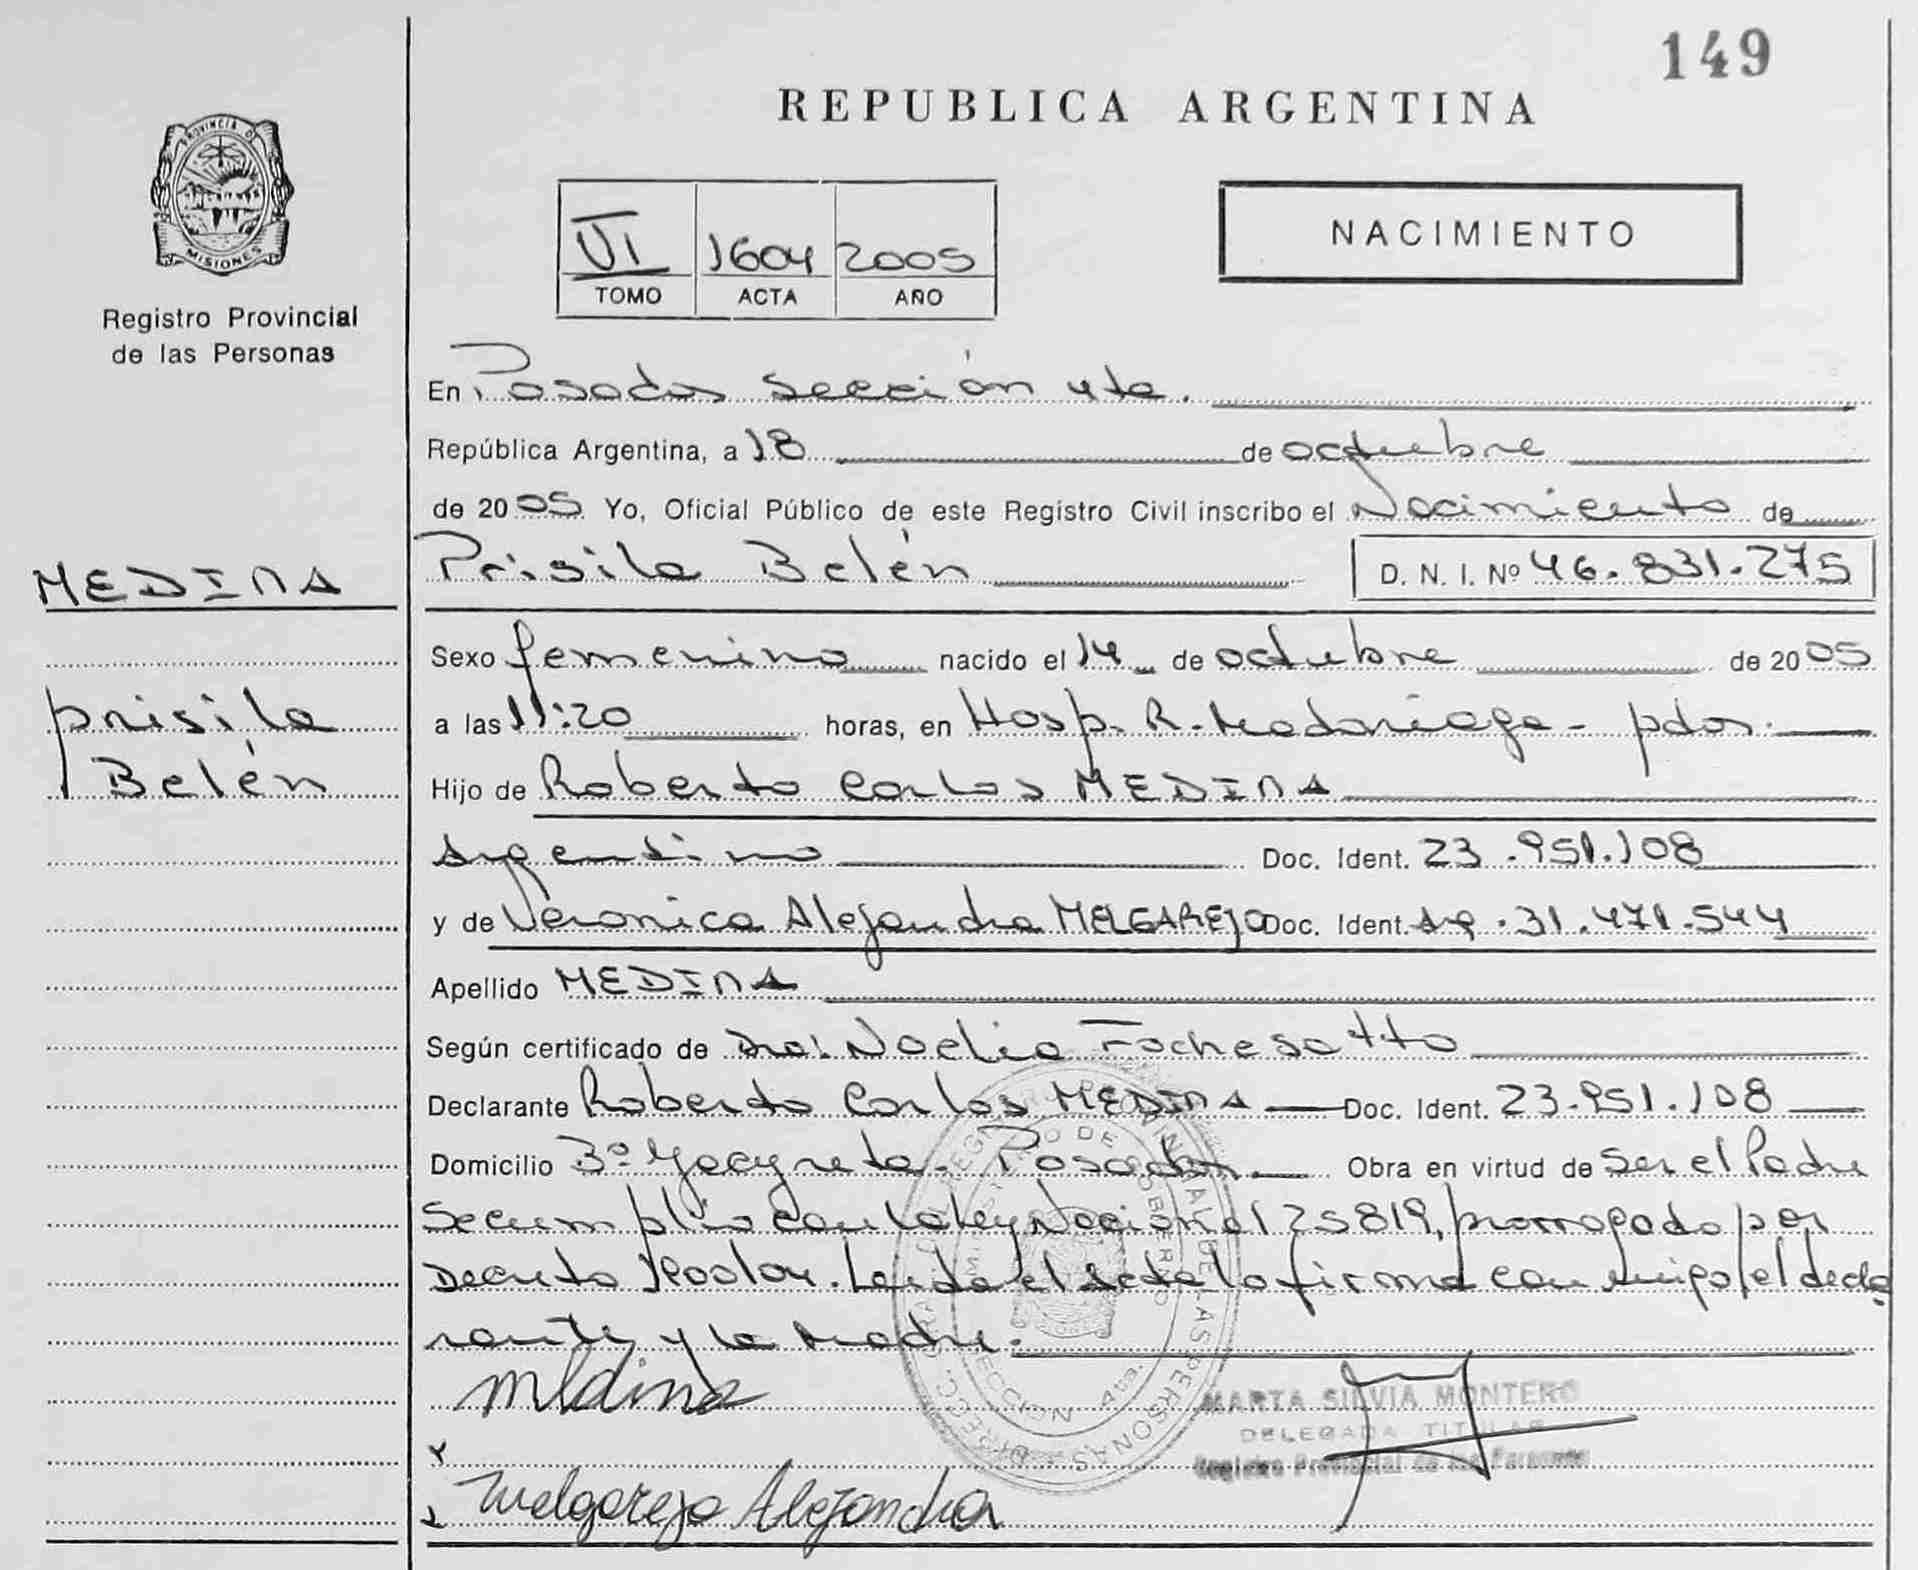 149
REPUBLICA ARGENTINA
PROVINCIA DE
MISIONES
Registro Provincial
de las Personas
VI 1604 2005
TOMO ACTA AÑO
NACIMIENTO
En Posadas Sección 4ta.
República Argentina, a 18 de octubre
de 2005 Yo, Oficial Público de este Registro Civil inscribo el Nacimiento de
MEDINA
Prisila Belén D. N. I. Nº 46.831.275
Sexo femenino nacido el 14 de octubre de 2005
prisila
Belén
a las 11:20 horas, en Hosp. R. Madariaga - pdas.
Hijo de Roberto Carlos MEDINA
Argentino Doc. Ident. 23.951.108
y de Veronica Alejandra MELGAREJO Doc. Ident. Arg. 31.471.544
Apellido MEDINA
Según certificado de Dra: Noelia Fochesatto
Declarante Roberto Carlos MEDINA Doc. Ident. 23.951.108
Domicilio Bº Yacyreta - Posadas. Obra en virtud de Ser el Padre
Se cumplio con la ley Nacional 25819, prorrogado por
Decreto . Leida el acta lo firma conmigo el decla
rante y la Madre.
Medina
MARTA SILVIA MONTERO
DELEGADA TITULAR
Registro Provincial de las Personas
Melgarejo Alejandra